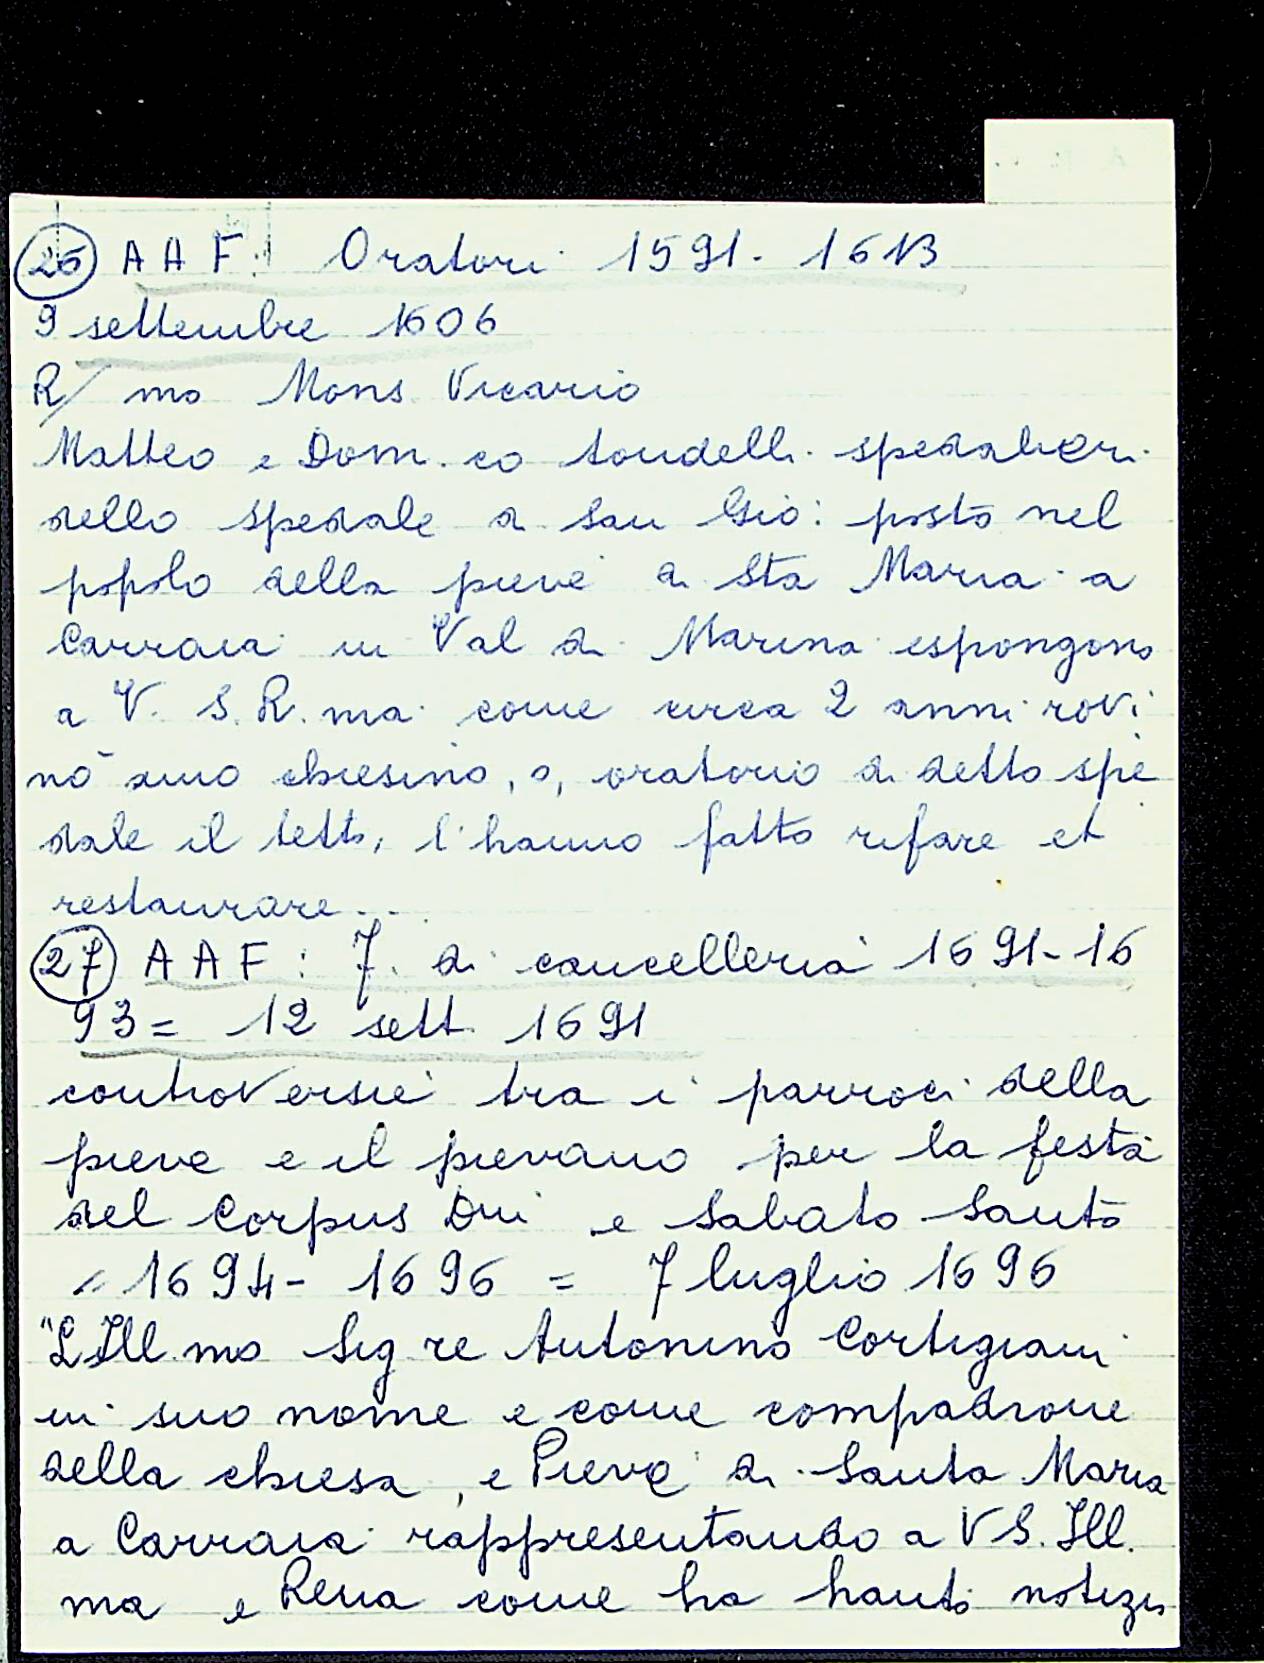 26 A A F: Oratori 1591-1613
9 settembre 1606
R/mo Mons. Vicario
Matteo e Dom.co Tondelli spedalieri
dello spedale di San Gio: posto nel
popolo della pieve di Sta Maria a
Carraia in Val di Marina espongono
a V. S. R.ma come circa 2 anni rovi
nò uno chiesino, o, oratorio di detto spe
dale il tetto, l'hanno fatto rifare et
restaurare...
27 A A F: 7. di cancelleria 1691-16
93 = 12 sett. 1691
controversie tra i parroci della
pieve e il pievano per la festa
del Corpus Dni e Sabato Santo
= 1694-1696 = 7 luglio 1696
"L'Ill.mo Sig.re Antonino Cortigiani
in suo nome e come compadrone
della chiesa, e Pieve di Santa Maria
a Carraia rappresentando a V S. Ill.
ma e Rema come ha hauti notizi